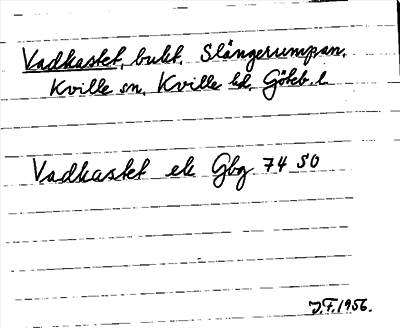 Vadkastet, bukt, Slångerumpan,
Kville sn, Kville hd, Göteb. l.
Vadkastet ek Gbg 74 SO
J.F. 1956.